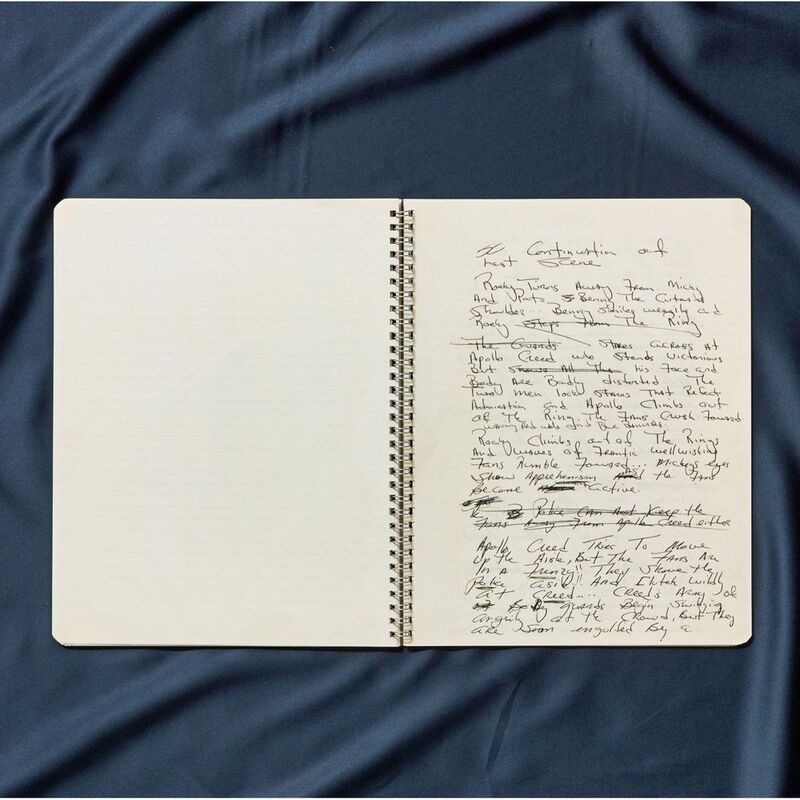 Continuation of
Last Scene
Rocky Turns Away From Micky
And Pats Benny The Cutmans
Shoulder... Benny Smiles weagily and
Rocky Steps From The Ring
The Guards Stares across at
Apollo Creed who stands victorious
But Shows All The his Face and
Body Are Badly distorted The
Two men lock Stares That Reflect
Admiration and Apollo Climbs out
of The Ring The Fans Crush Forward
waving Red white and Blue
Rocky Climbs out of The Rings
And waves of Frantic wellwishing
Fans Rumble Forward... Mickeys eyes
Show Apprehension And the Fans
become active.
Police Can Not Keep the
Fans Away From Apollo Creed either
Apollo Creed Tries To Move
Up the Aisle, But The Fans Are
In A Frenzy!! They Shove the
Police Aside!! And Clutch Wildly
at Creed... Creeds Army of
Body guards Begin Swinging
angrily at the Crowd, But They
are soon engulfed By a